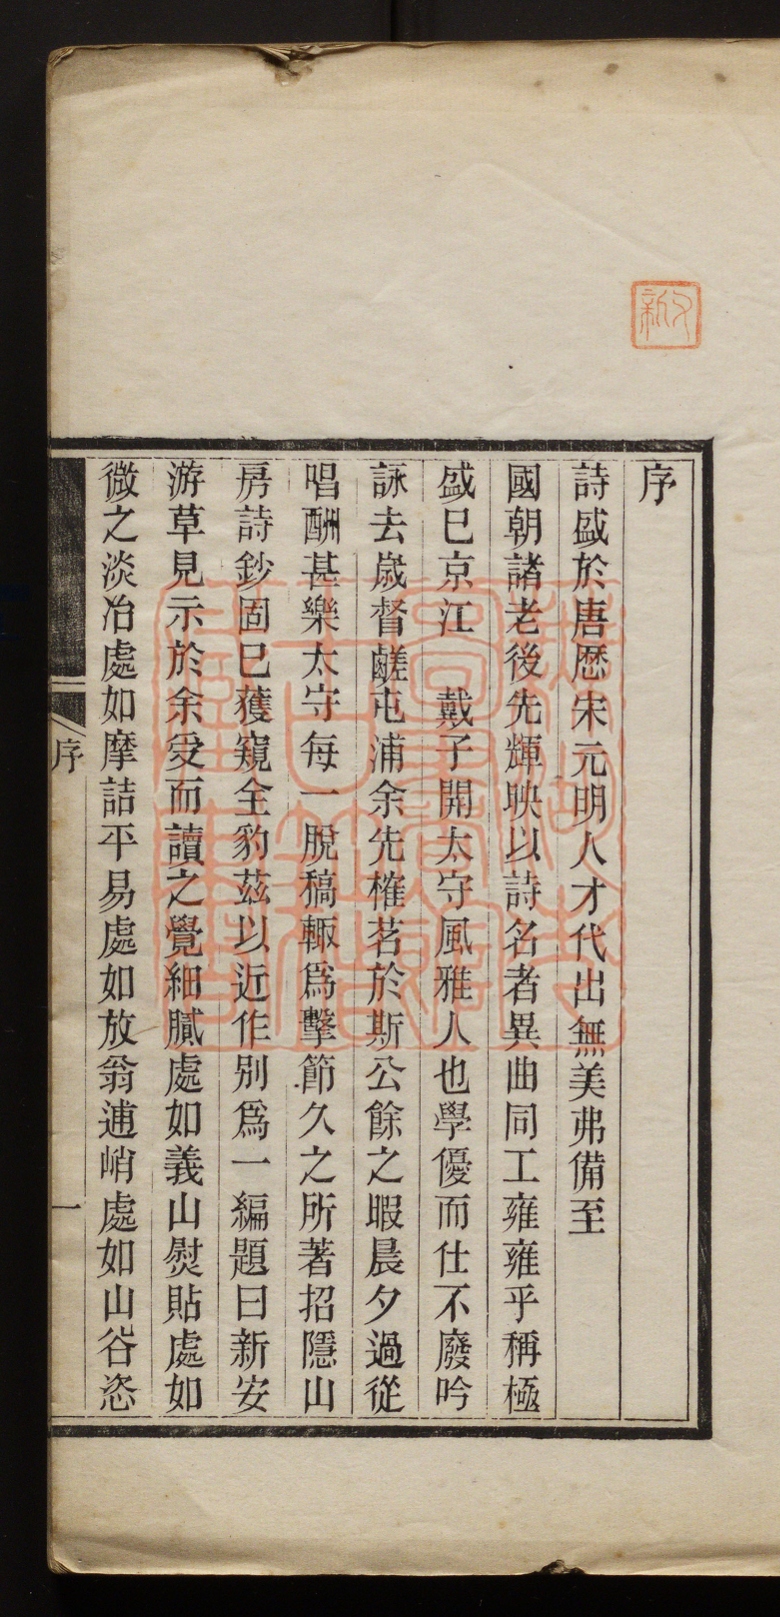 序
詩盛於唐歷宋元明人才代出無美弗備至
國朝諸老後先輝映以詩名者異曲同工雍雍乎稱極
盛已京江　戴子開太守風雅人也學優而仕不廢吟
詠去歲督鹺屯浦余先榷茗於斯公餘之暇晨夕過從
唱酬甚樂太守每一脫稿輙為擊節久之所著招隱山
房詩鈔固已獲窺全豹茲以近作別為一編題曰新安
游草見示於余受而讀之覺細膩處如義山熨貼處如
微之淡冶處如摩詰平易處如放翁逋峭處如山谷恣
序
一